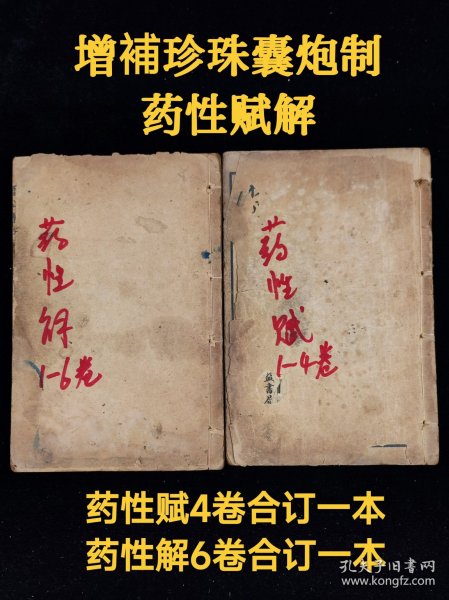 增補珍珠囊炮制
药性赋解
药性解
1-6卷
药性赋
1-4卷
药性赋4卷合订一本
药性解6卷合订一本
孔夫子旧书网
www.kongfz.com